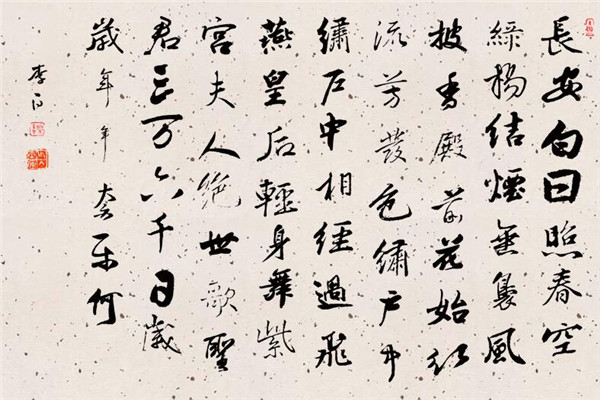 長安白日照春空
綠楊結煙垂裊風
披香殿前花始紅
流芳發色繡戶中
繡戶中相經過飛
燕皇后輕身舞紫
宮夫人絕世歌聖
君三万六千日歲
歲年年奈樂何
李白